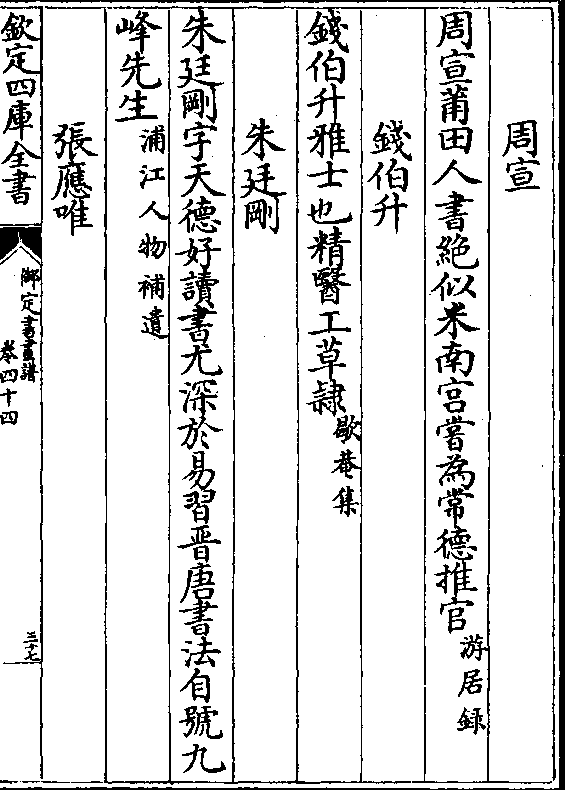 周宣
周宣莆田人書絕似米南宫嘗為常德推官游居録
錢伯升
錢伯升雅士也精醫工草隸歇菴集
朱廷剛
朱廷剛字天德好讀書尤深於易習晋唐書法自號九
峰先生浦江人物補遺
張應唯
欽定四庫全書
御定書畫譜
卷四十四
三十七